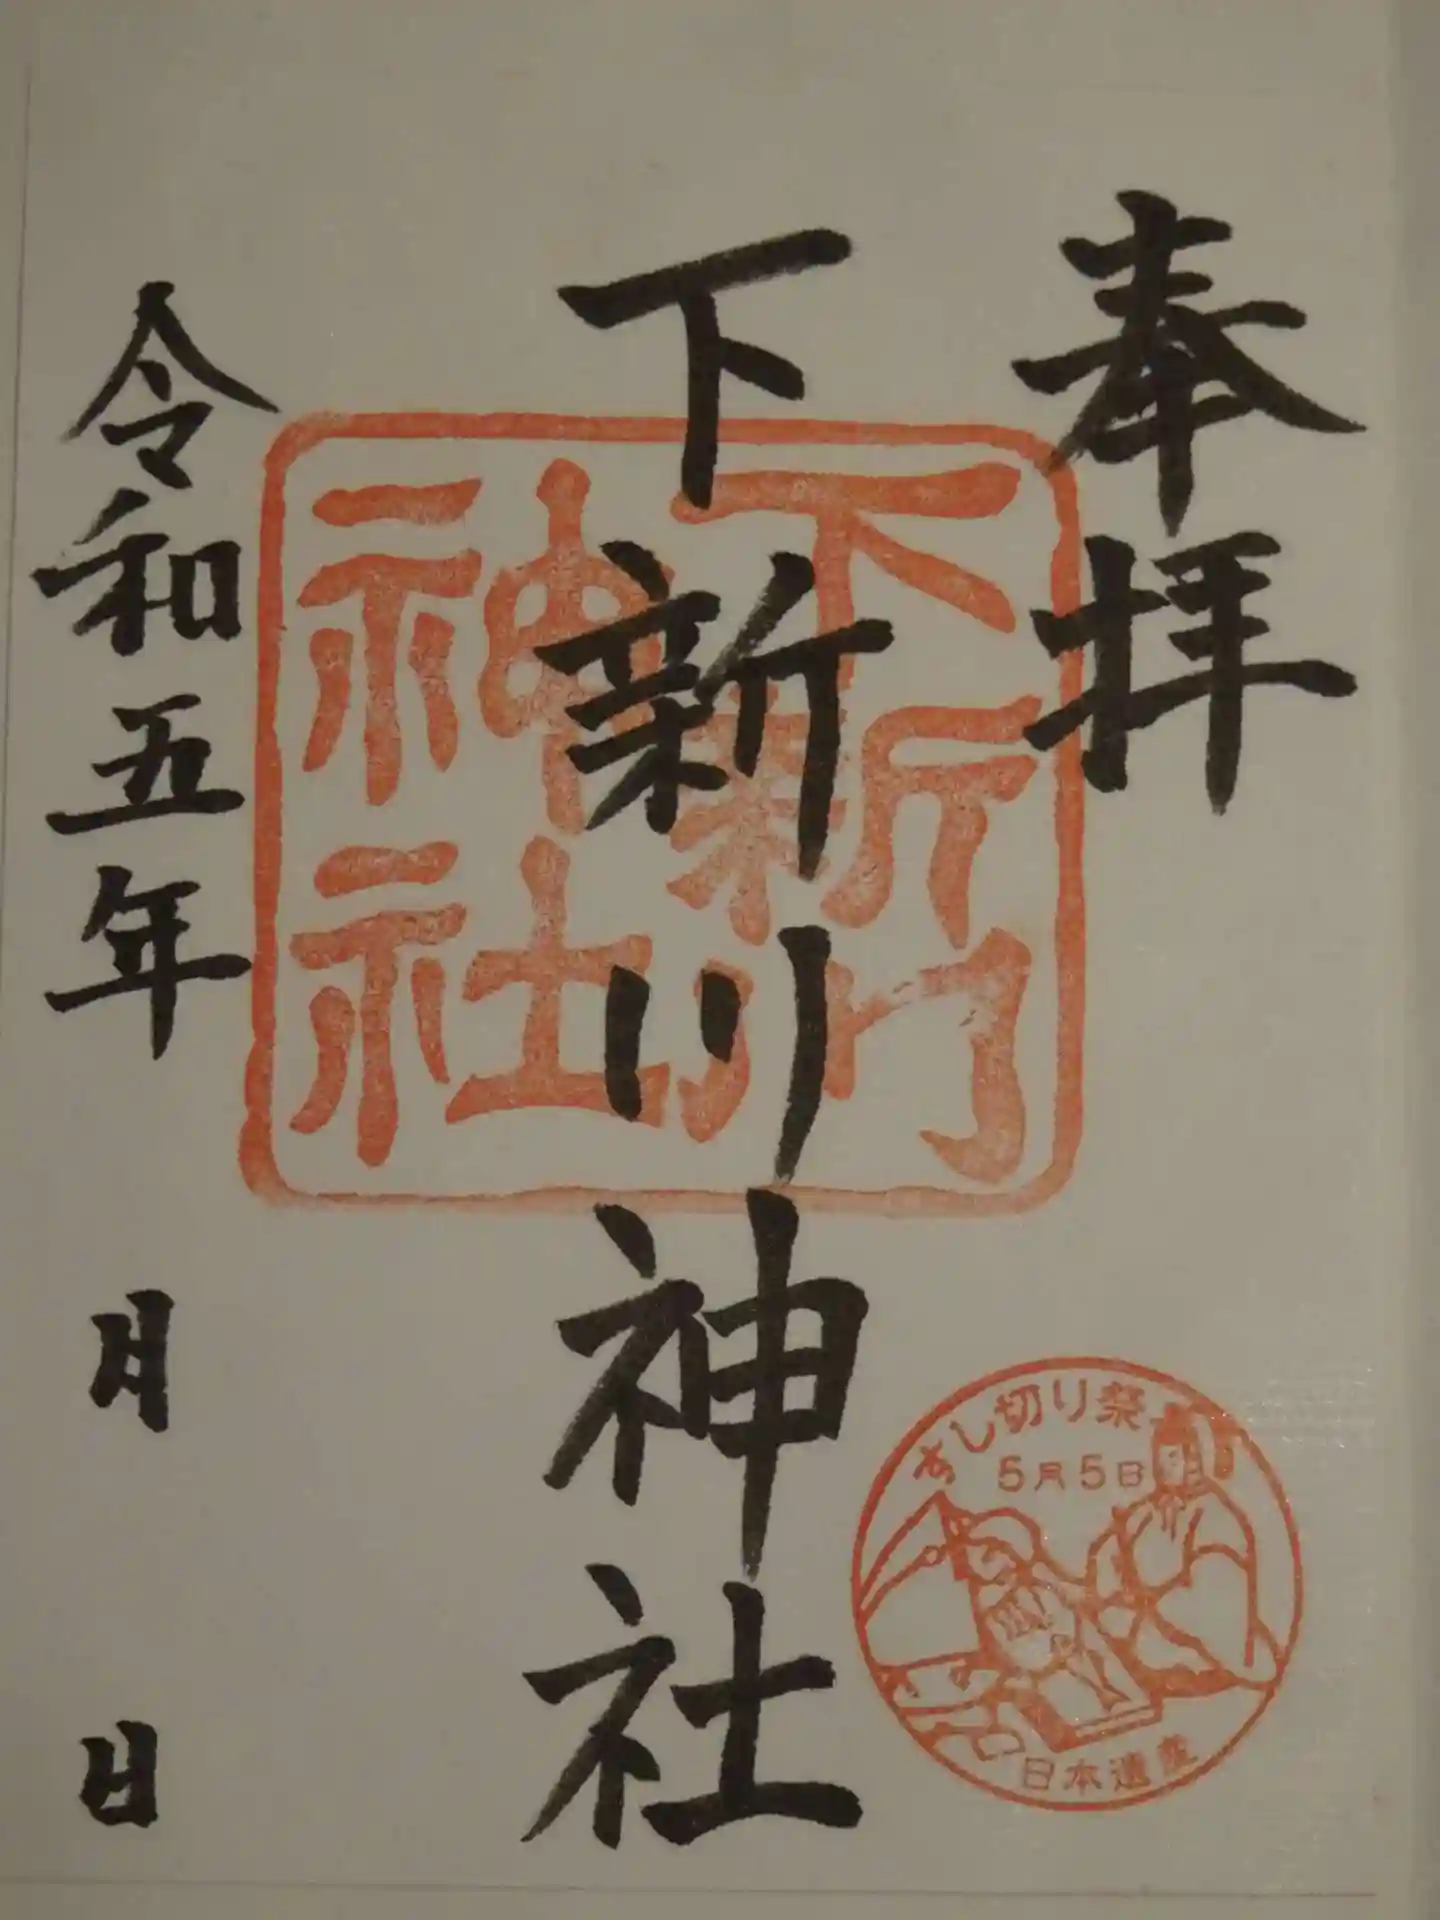 奉拝
下新川神社
下新川
神社
令和五年 月 日
すし切り祭
5月5日
日本遺産